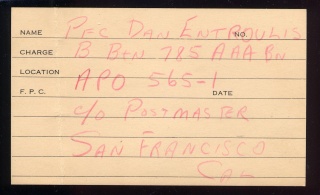 NAME PFC DAN ENTRAULIS NO.
CHARGE B BTN 785 AAA BN
LOCATION APO 565-1
F. P. C. DATE
C/O POSTMASTER
SAN FRANCISCO
CAL